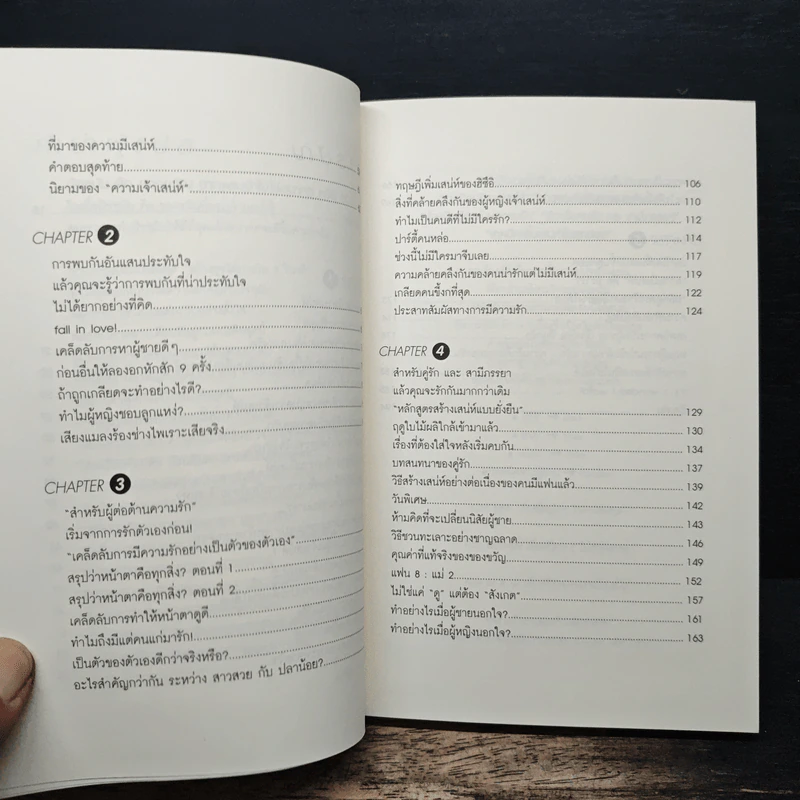 ที่มาของความมีเสน่ห์
คำตอบสุดท้าย
นิยามของ "ความเจ้าเสน่ห์"
CHAPTER 2
การพบกันอันแสนประทับใจ
แล้วคุณจะรู้ว่าการพบกันที่น่าประทับใจ
ไม่ได้ยากอย่างที่คิด
fall in love!
เคล็ดลับการหาผู้ชายดีๆ
ก่อนอื่นให้ลองอกหักสัก 9 ครั้ง
ถ้าถูกเกลียดจะทำอย่างไรดี?
ทำไมผู้หญิงชอบลูกแหง่?
เสียงแมลงร้องช่างไพเราะเสียจริง
CHAPTER 3
"สำหรับผู้ต่อต้านความรัก"
เริ่มจากการรักตัวเองก่อน!
"เคล็ดลับการมีความรักอย่างเป็นตัวของตัวเอง"
สรุปว่าหน้าตาคือทุกสิ่ง? ตอนที่ 1
สรุปว่าหน้าตาคือทุกสิ่ง? ตอนที่ 2
เคล็ดลับการทำให้หน้าตาดูดี
ทำไมถึงมีแต่คนแก่มารัก!
เป็นตัวของตัวเองดีกว่าจริงหรือ?
อะไรสำคัญกว่ากัน ระหว่าง สาวสวย กับ ปลาน้อย?
ทฤษฎีเพิ่มเสน่ห์ของฮิซือิ 106
สิ่งที่คล้ายคลึงกันของผู้หญิงเจ้าเสน่ห์ 110
ทำไมเป็นคนดีที่ไม่มีใครรัก? 112
ปาร์ตี้คนหล่อ 114
ช่วงนี้ไม่มีใครมาจีบเลย 117
ความคล้ายคลึงกันของคนน่ารักแต่ไม่มีเสน่ห์ 119
เกลียดคนขี้งกที่สุด 122
ประสาทสัมผัสทางการมีความรัก 124
CHAPTER 4
สำหรับคู่รัก และ สามีภรรยา
แล้วคุณจะรักกันมากกว่าเดิม
"หลักสูตรสร้างเสน่ห์แบบยั่งยืน" 129
ฤดูใบไม้ผลิใกล้เข้ามาแล้ว 130
เรื่องที่ต้องใส่ใจหลังเริ่มคบกัน 134
บทสนทนาของคู่รัก 137
วิธีสร้างเสน่ห์อย่างต่อเนื่องของคนมีแฟนแล้ว 139
วันพิเศษ 142
ห้ามคิดที่จะเปลี่ยนนิสัยผู้ชาย 143
วิธีชวนทะเลาะอย่างชาญฉลาด 146
คุณค่าที่แท้จริงของของขวัญ 149
แฟน 8 : แม่ 2 152
ไม่ใช่แค่ "ดู" แต่ต้อง "สังเกต" 157
ทำอย่างไรเมื่อผู้ชายนอกใจ? 161
ทำอย่างไรเมื่อผู้หญิงนอกใจ? 163